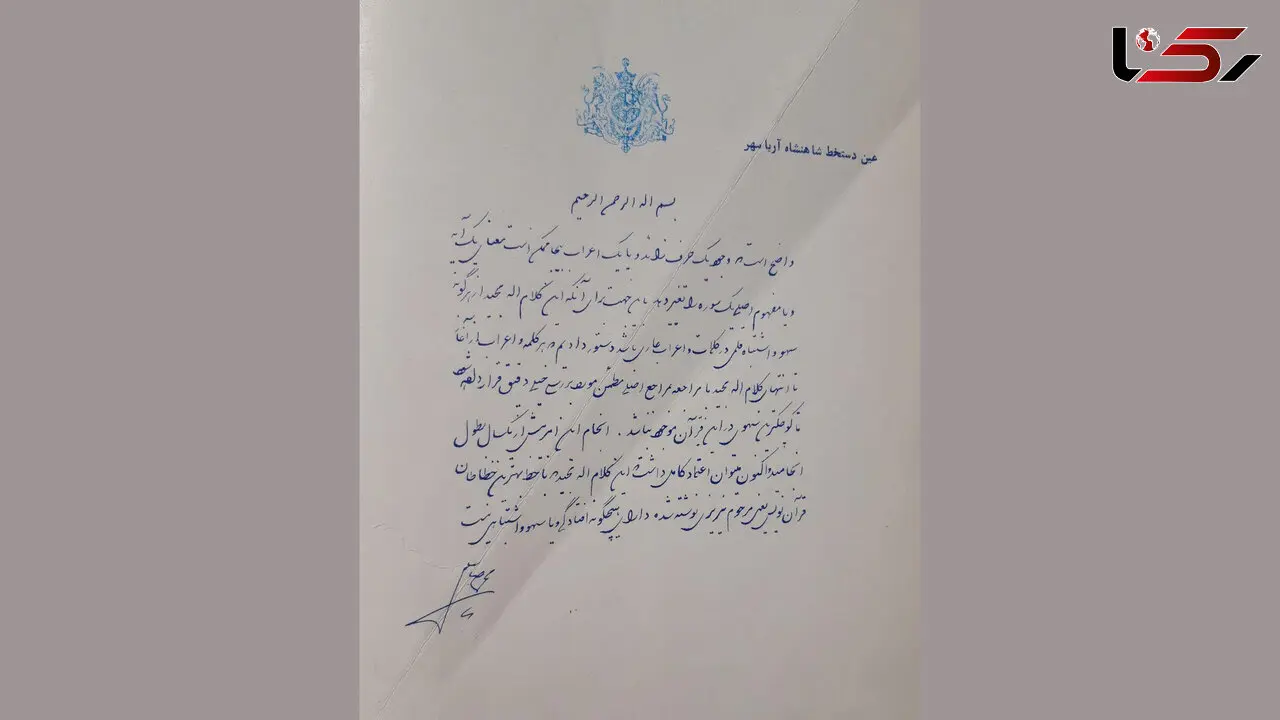 رکنا
عین دستخط شاهنشاه آریامهر
بسم اله الرحمن الرحیم
واضح است که وجود یک حرف زائد و یا یک اعراب بیجا ممکن است معنای یک آیه
و یا مفهوم اصلی یک سوره را تغییر دهد بدین جهت برای آنکه این کلام اله مجید از هرگونه
سهو و اشتباه قلمی در کلمات و اعراب عاری باشد دستور دادیم که هر کلمه و اعراب از آغاز
تا انتهای کلام اله مجید با مراجعه بمراجع اصلی مطمئن مورد بررسی خیلی دقیق قرار داده شود
تا کوچکترین سهوی در این قرآن موجود نباشد . انجام این امر بیش از یکسال بطول
انجامید و اکنون میتوان اعتماد کامل داشت که این کلام اله مجید که با خط بهترین خطاطان
قرآن نویس یعنی مرحوم نیریزی نوشته شده دارای هیچگونه افتادگی و یا سهو و اشتباهی نیست